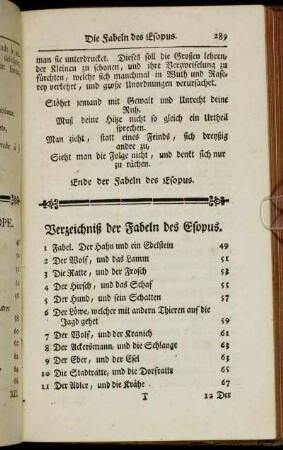 Die Fabeln des Esopus. 289
man sie unterdrucket. Dieses soll die Großen lehren,
der Kleinen zu schonen, und ihre Verzweifelung zu
fürchten, welche sich manchmal in Wuth und Rase-
rey verkehrt, und große Unordnungen verursachet.
Stöhrt jemand mit Gewalt und Unrecht deine
Ruh.
Muß deine Hitze nicht so gleich ein Urtheil
sprechen.
Man zieht, statt eines Feinds, sich dreyßig
andre zu,
Sieht man die Folge nicht, und denkt sich nur
zu rächen.
Ende der Fabeln des Esopus.
Verzeichniß der Fabeln des Esopus.
1 Fabel. Der Hahn und ein Edelstein 49
2 Der Wolf, und das Lamm 51
3 Die Ratte, und der Frosch 53
4 Der Hirsch, und das Schaf 55
5 Der Hund, und sein Schatten 57
6 Der Löwe, welcher mit andern Thieren auf die
Jagd gehet 59
7 Der Wolf, und der Kranich 61
8 Der Ackersmann, und die Schlange 63
9 Der Eber, und der Esel 63
10 Die Stadtratte, und die Dorfratte 65
11 Der Adler, und die Krähe 67
T 12 Der